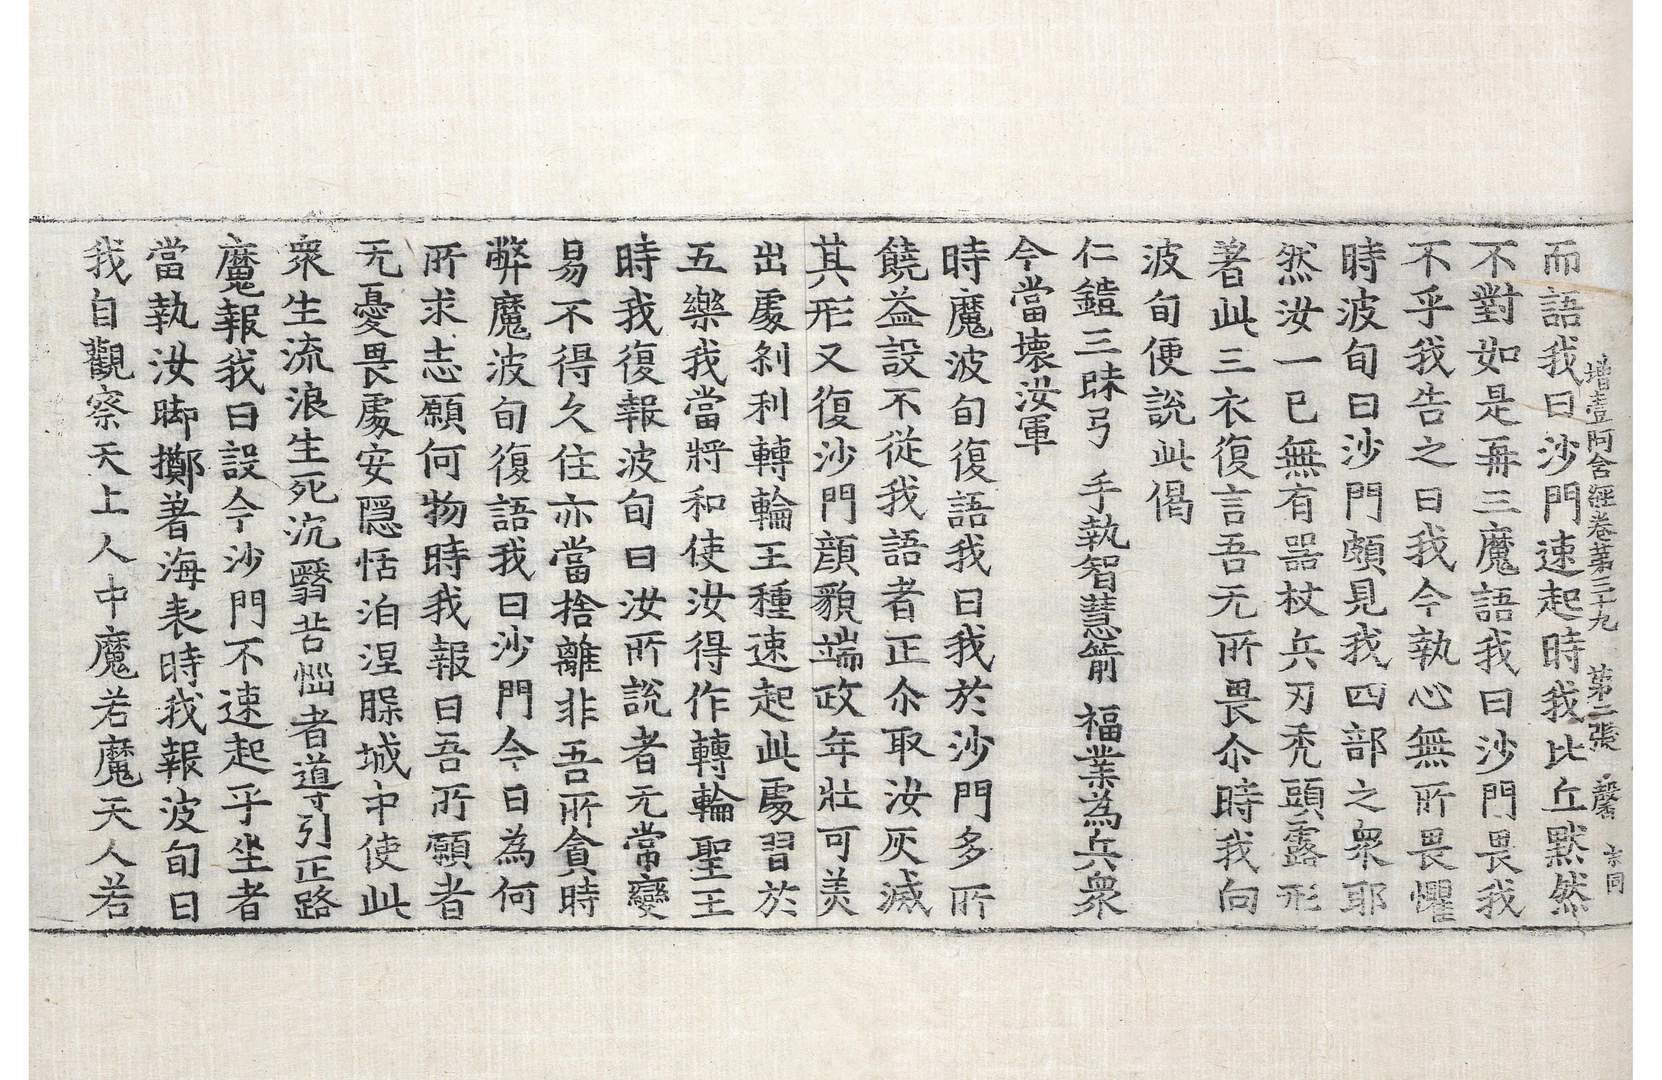 增壹阿含經卷第三十九 第二張 馨 宗同
而語我曰沙門速起時我比丘默然
不對如是再三魔語我曰沙門畏我
不乎我告之曰我今執心無所畏懼
時波旬曰沙門頗見我四部之衆耶
然汝一已無有器杖兵刃禿頭露形
著此三衣復言吾无所畏尒時我向
波旬便說此偈
仁鎧三昧弓 手執智慧箭 福業為兵衆
今當壞汝軍
時魔波旬復語我曰我於沙門多所
饒益設不從我語者正尒取汝灰滅
其形又復沙門顏貌端政年壯可美
出處剎利轉輪王種速起此處習於
五樂我當將和使汝得作轉輪聖王
時我復報波旬曰汝所說者无常變
易不得久住亦當捨離非吾所貪時
弊魔波旬復語我曰沙門今日為何
所求志願何物時我報曰吾所願者
无憂畏處安隱恬泊涅槃城中使此
衆生流浪生死沉翳苦惱者導引正路
魔報我曰設今沙門不速起乎坐者
當執汝脚擲著海表時我報波旬曰
我自觀察天上人中魔若魔天人若